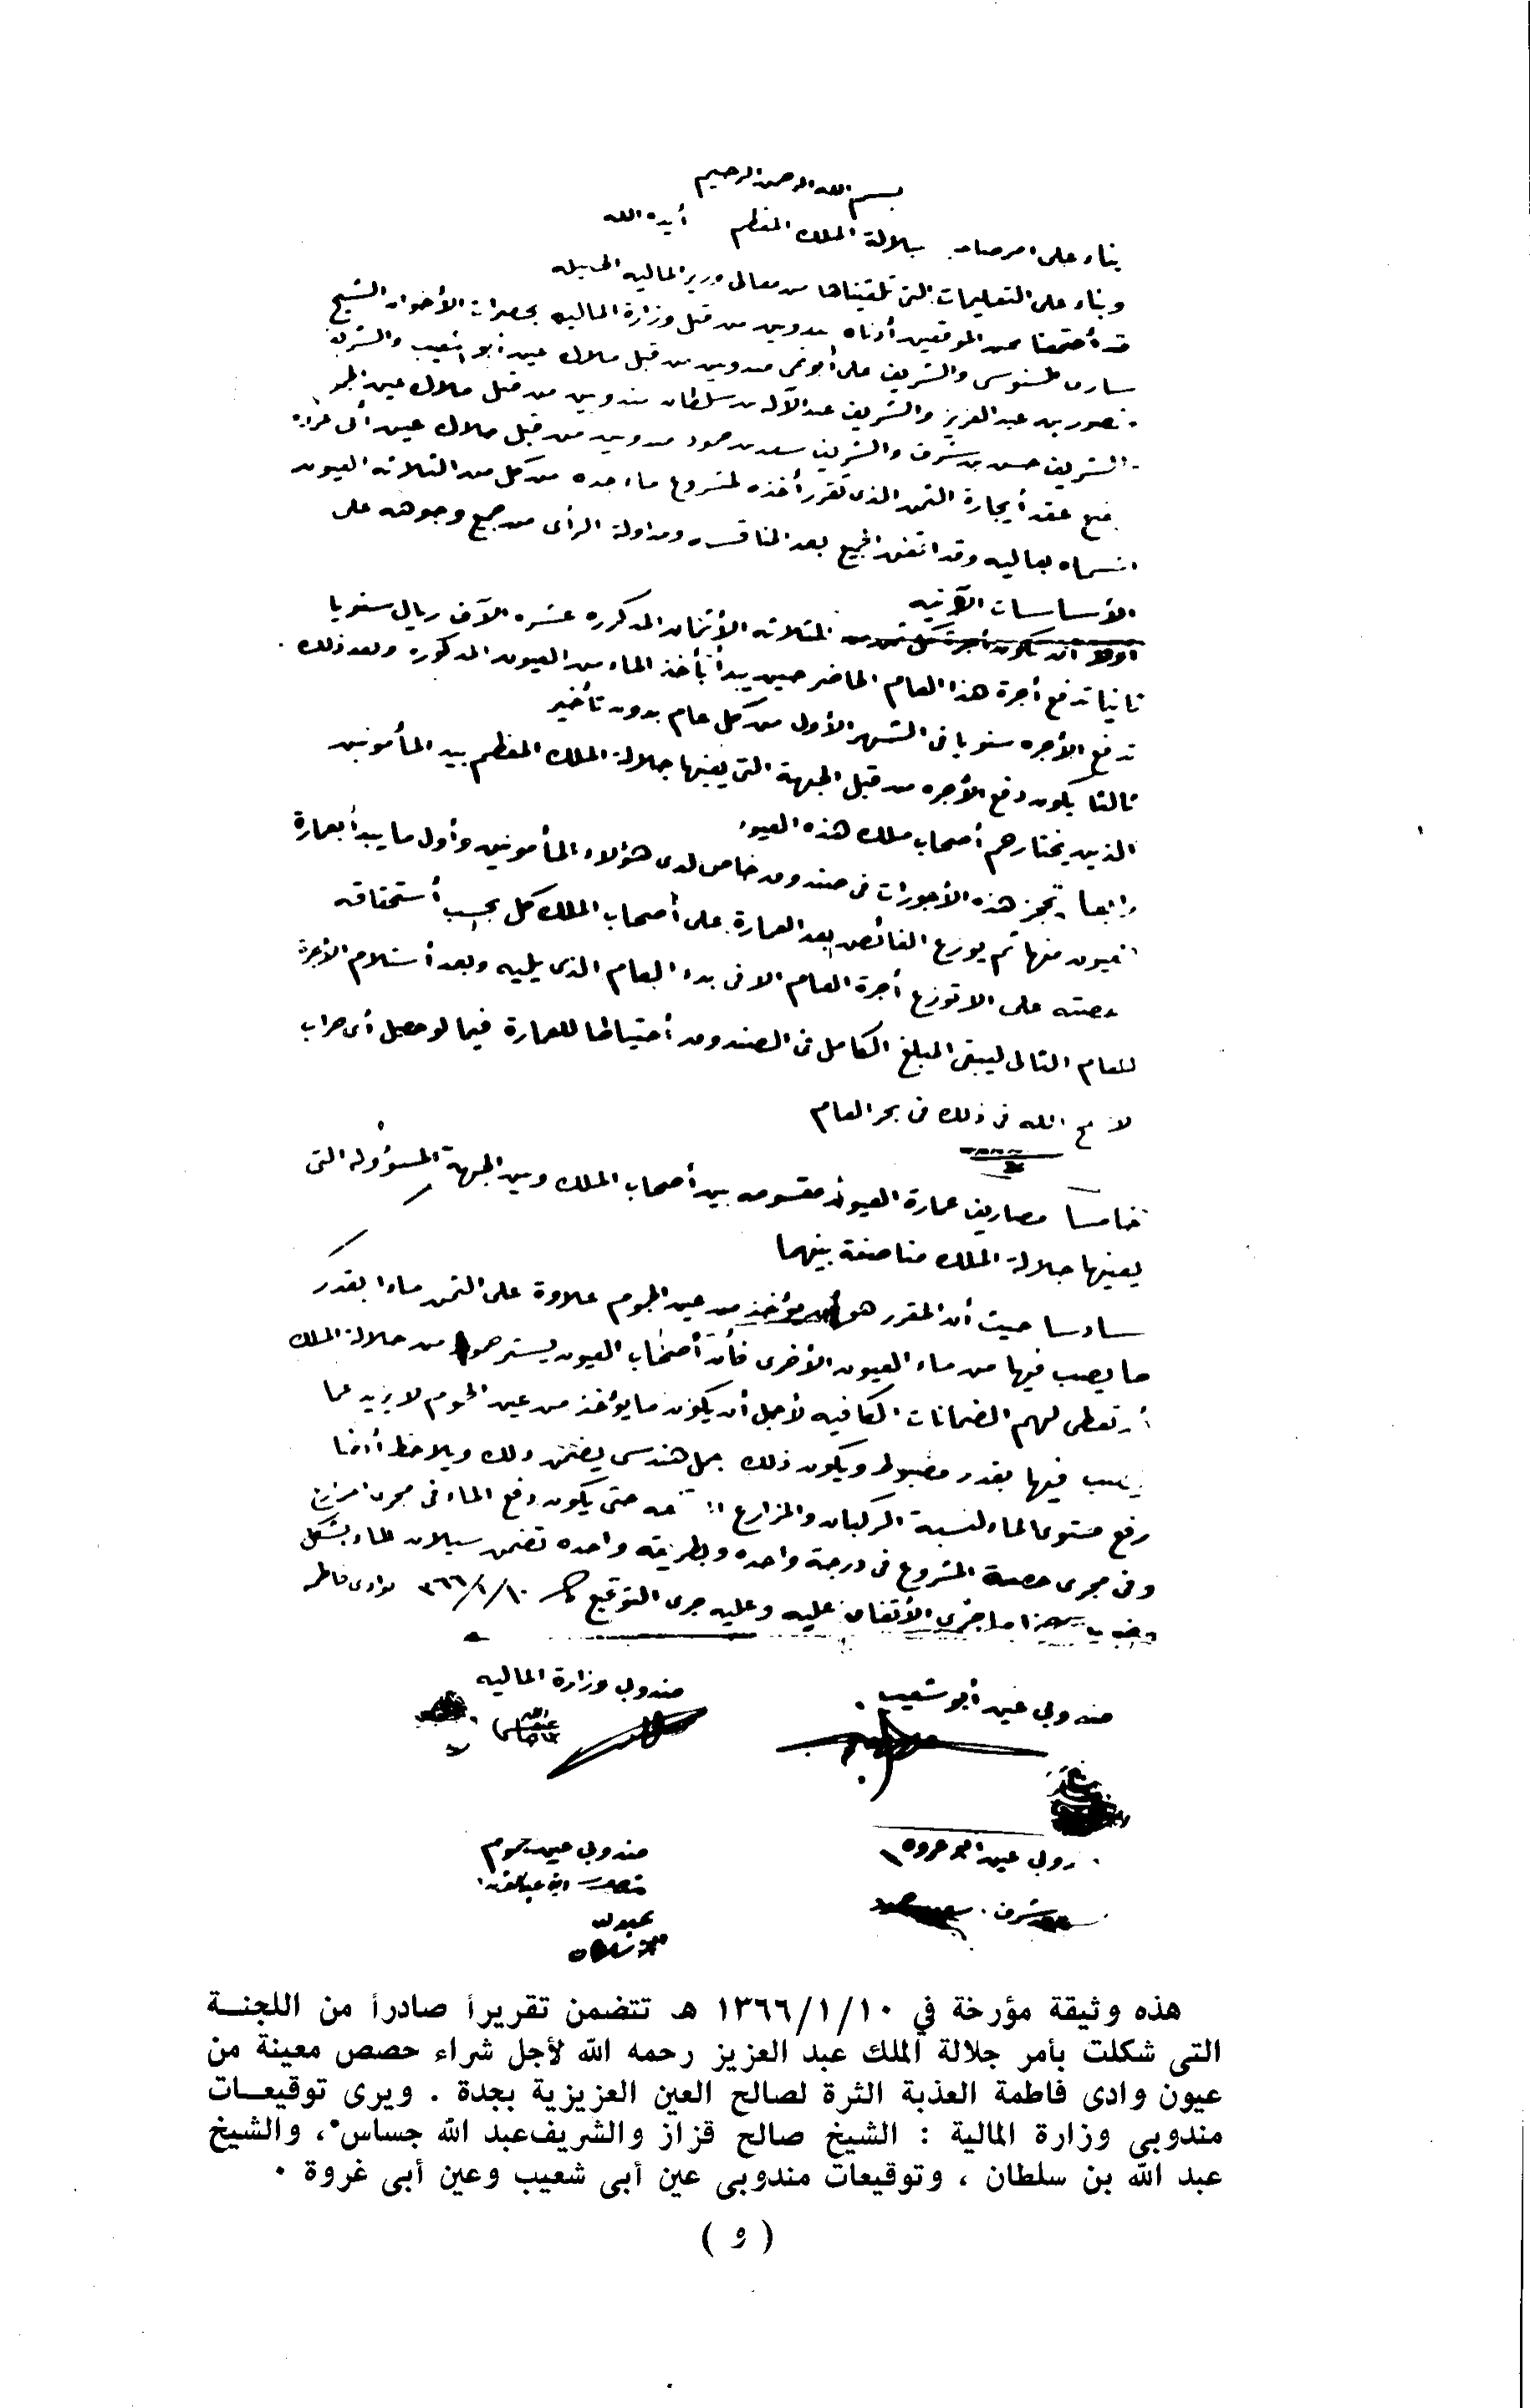 بسم الله الرحمن الرحيم
بناء على امر صاحب جلالة الملك المعظم أيده الله
وبناء على التعليمات التى تلقيناها من معالى وزير الماليه الجليله
قد أجتمعنا نحن الموقعين أدناه مندوبين من قبل وزارة الماليه بحضرات الأخوان الشيخ
سارى السنوسى والشريف على أبو نمى مندوبين من قبل ملاك عين أبو شعيب والشريف
منصور بن عبد العزيز والشريف عبد الآله بن سلطان مندوبين من قبل ملاك عين الجموم
والشريف حسن بن شرف والشريف سعد بن حمود مندوبين من قبل ملاك عين أبى عروه
عقد أيجارة الثمن الذى تقرر أخذه لمشروع ماء جده من كل من الثلاثه العيون
المسماه بعاليه وقد اتفق الجميع بعد المناقشه ومداولة الرأى من جميع وجوهه على
الأساسات الآتيه
اولا ان تكون أجرة كل ثمن من الثلاثه الأثمان المذكوره عشره الآف ريال سنويا
ثانيا تدفع أجرة هذا العام الحاضر حين يبدأ بأخذ الماء من العيون المذكوره وبعد ذلك
تدفع الأجره سنويا فى الشهر الأول من كل عام بدون تأخير
ثالثا يكون دفع الأجره من قبل الجهة التى يعينها جلالة الملك المعظم بيد المأمونين
الذين يختارهم أصحاب ملك هذه العيون
رابعا تحجز هذه الأجورات فى صندوق خاص لدى هؤلاء المأمونين وأول ما يبدأ بعمارة
العيون منها ثم يوزع الفائض بعد العمارة على أصحاب الملك كل بحسب أستحقاقه
حصته على الا توزع أجرة العام الا فى بدء العام الذى يليه وبعد أستلام الأجرة
للعام التالى ليبقى المبلغ الكامل فى الصندوق أحتياطا للعمارة فيما لو حصل أى خراب
لا سمح الله فى ذلك فى بحر العام
خامسا مصاريف عمارة العيون مقسومه بين أصحاب الملك وبين الجهة المسؤوله التى
يعينها جلالة الملك مناصفة بينهما
سادسا حيث أن المقرر هو أن يؤخذ من عين الجموم علاوة على الثمن ماءا بقدر
ما يصب فيها من ماء العيون الأخرى فأن أصحاب العيون يسترحموا من جلالة الملك
أن تعطى لهم الضمانات الكافيه لأجل أن يكون ما يؤخذ من عين الجموم لا يزيد عما
يصب فيها بقدر مضبوط ويكون ذلك بعمل هندسى يضمن ذلك ويلاحظ أيضا
رفع مستوى الماء لنسبة الركبان والمزارع حتى يكون دفع الماء فى مجرى
وفى مجرى حصة المشروع فى درجة واحده وبطريقه واحده تضمن سيلان الماء بشكل
هذا ما جرى الأتفاق عليه وعليه جرى التوقيع ١٠/١/٣٦٦ بوادى فاطمه
مندوبى عين أبو شعيب مندوبى وزارة الماليه
مندوبى عين ابو عروه مندوبى عين جموم
هذه وثيقة مؤرخة في ١٣٦٦/١/١٠ هـ تتضمن تقريراً صادراً من اللجنة
التى شكلت بأمر جلالة الملك عبد العزيز رحمه الله لأجل شراء حصص معينة من
عيون وادى فاطمة العذبة الثرة لصالح العين العزيزية بجدة . ويرى توقيعات
مندوبى وزارة المالية : الشيخ صالح قزاز والشريف عبد الله جساس ، والشيخ
عبد الله بن سلطان ، وتوقيعات مندوبى عين أبى شعيب وعين أبى غروة .
( و )